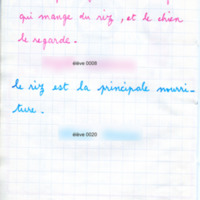 qui mange du riz, et le chien
le regarde.
élève 0008
le riz est la principale nourri-
ture.
élève 0020